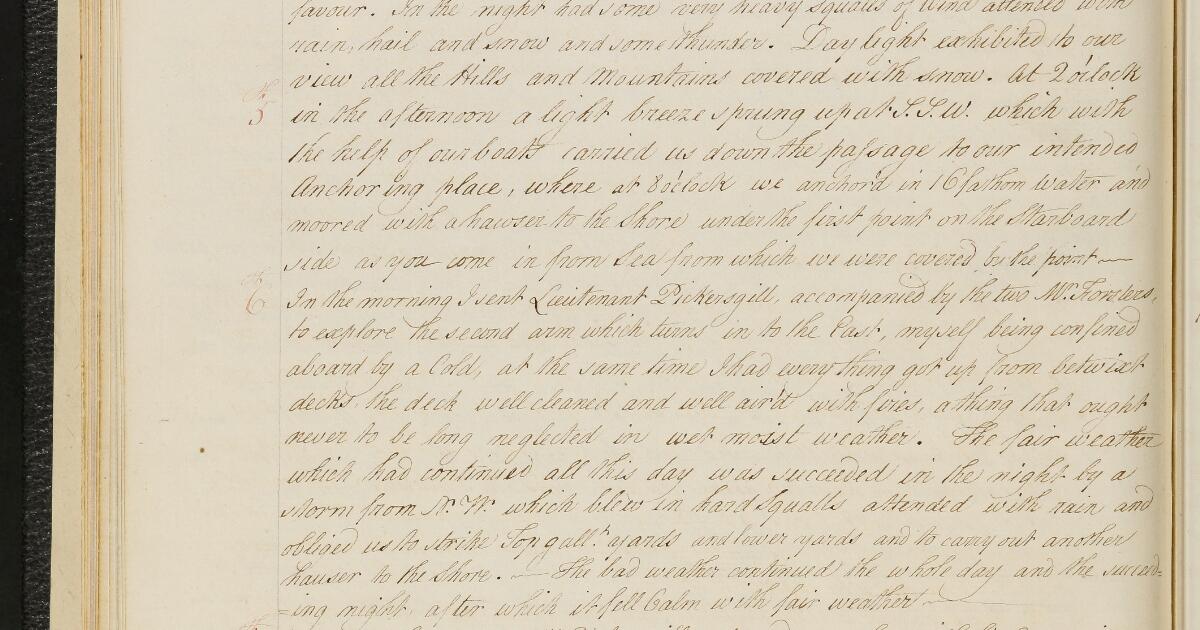 favour. In the night had some very heavy squalls of wind attended with
rain, hail and snow and some thunder. Daylight exhibited to our
view all the Hills and Mountains covered with snow. At 2 o'clock
th 5 in the afternoon a light breeze sprung up at S.S.W. which with
the help of our boats carried us down the passage to our intended
Anchoring place, where at 8 o'clock we anchor'd in 16 fathom water and
moored with a hawser to the Shore under the first point on the Starboard
side as you come in from Sea from which we were covered by the point —
th 6 In the morning I sent Lieutenant Pickersgill, accompanied by the two Mr. Forsters,
to explore the second arm which turns in to the East, myself being confined
aboard by a Cold, at the same time I had every thing got up from betwixt
decks, the deck well cleaned and well air'd with fires, a thing that ought
never to be long neglected in wet moist weather. The fair weather
which had continued all this day was succeeded in the night by a
storm from N.W. which blew in hard Squalls attended with rain and
obliged us to strike Top gallt. yards and lower yards and to carry out another
hauser to the Shore. — The bad weather continued the whole day and the succeed=
=ing night, after which it fell Calm with fair weather —